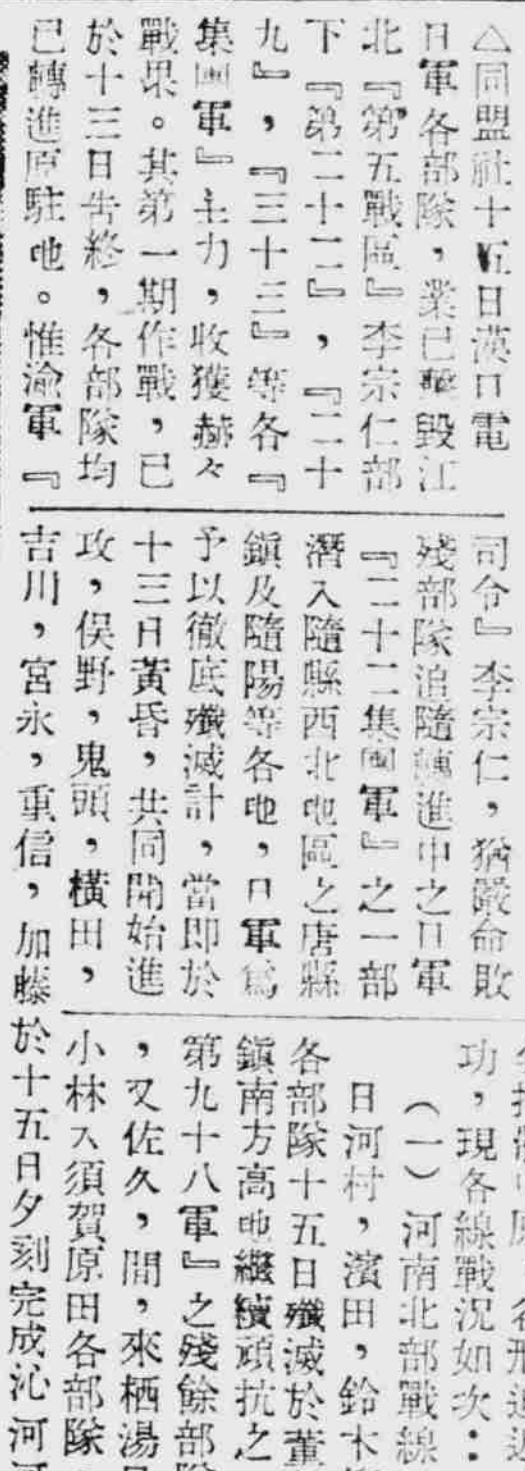 △同盟社十五日漢口電
日軍各部隊，業已擊毀江
北『第五戰區』李宗仁部
下『第二十二』，『二十
九』，『三十三』等各『
集團軍』主力，收獲赫々
戰果。其第一期作戰，已
於十三日告終，各部隊均
已轉進原駐地。惟渝軍『
司令』李宗仁，猶嚴命敗
殘部隊追隨轉進中之日軍
『二十二集團軍』之一部
潛入隨縣西北地區之唐縣
鎭及隨陽等各地，日軍爲
予以徹底殲滅計，當即於
十三日黃昏，共同開始進
攻，俣野，鬼頭，橫田，
吉川，宮永，重信，加藤
功，現各線戰況如次：
（一）河南北部戰線
日河村，濱田，鈴木
各部隊十五日殲滅於董
鎭南方高地繼續頑抗之
第九十八軍』之殘餘部
，又佐久，間，來栖湯
小林入須賀原田各部隊
於十五日夕刻完成沁河